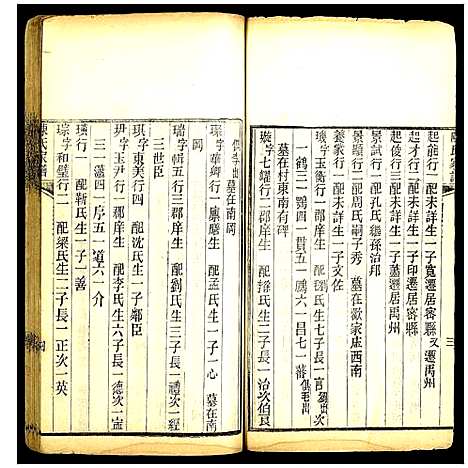 起能行一配未詳生一子寬遷居密縣又遷禹州
起才行二配未詳生一子印遷居密縣
起俊行三配未詳生一子蕙遷居禹州
景試行一配孔氏繼孫治邦
景行二配周氏嗣子秀 墓在歐家庄西南
養蒙行一配未詳生一子文佐
璇字玉衡行一郡庠生 配氏生七子長一言
一鶴三一鶚四一貫五一鵬六一昌七一蕃
墓在村東南有碑
璇字七耀行二郡庠生 配潘氏生二子長一治次伯良
墓在南岡
字華卿行一廪生 配孟氏生一子一心 墓在南
岡
瑞字輯五行三郡庠生 配劉氏生三子長一禮次一經
三世臣
琪字東美行四 配沈氏生一子鄰臣
玥字玉尹行一郡庠生 配李氏生六子長一德次一寍
三一藻四一序五一道六一介
行一 配靳氏生一子一善
琮字和璧行二 配梁氏生二子長一正次一英
陳氏家譜
三
四